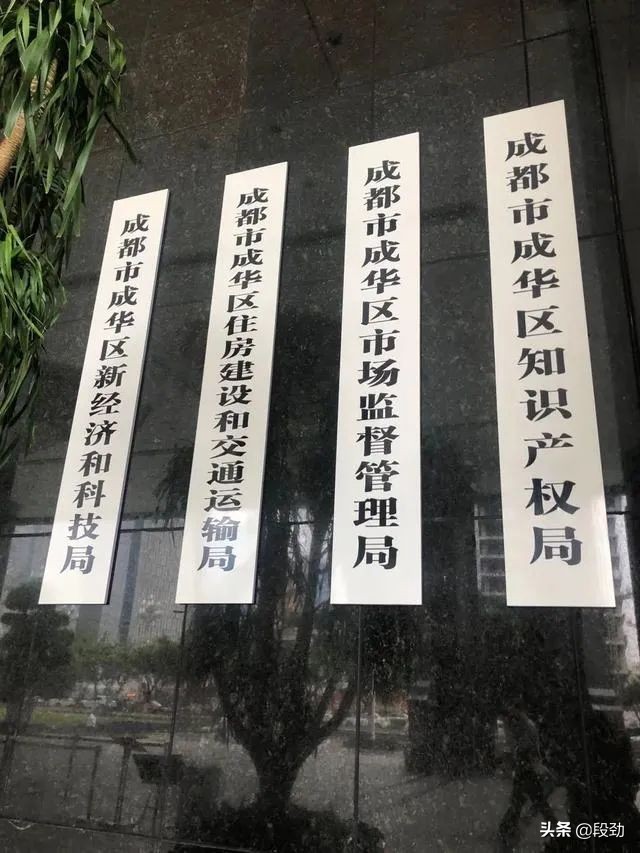 成都市成华区新经济和科技局
成都市成华区住房建设和交通运输局
成都市成华区市场监督管理局
成都市成华区知识产权局
头条 @段劲